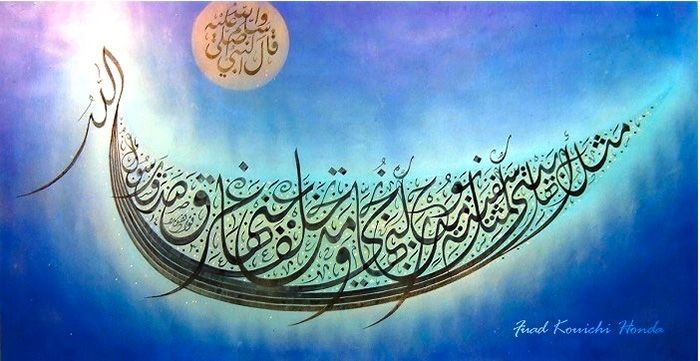 قال النبي صلى الله عليه
مثل أهل بيتي مثل سفينة نوح من ركبها نجا ومن تخلف عنها غرق صدق رسول الله
Fuad Kouichi Honda